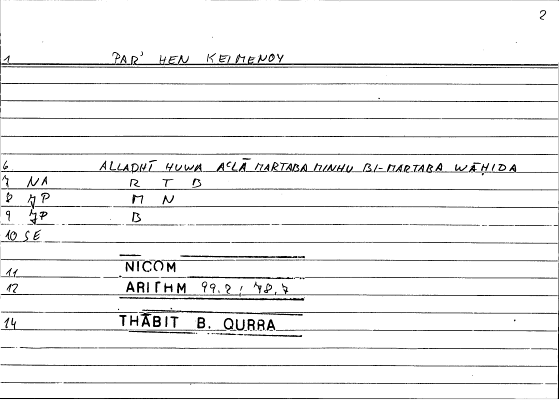 2
1 PAR' HEN KEIMENOY
6 ALLADHĪ HUWA AᶜLĀ MARTABA MINHU BI-MARTABA WĀḤIDA
7 NA R T B
8 JP M N
9 JP B
10 SE
11 NICOM
12 ARITHM 99.2; 78.7
14 THĀBIT B. QURRA